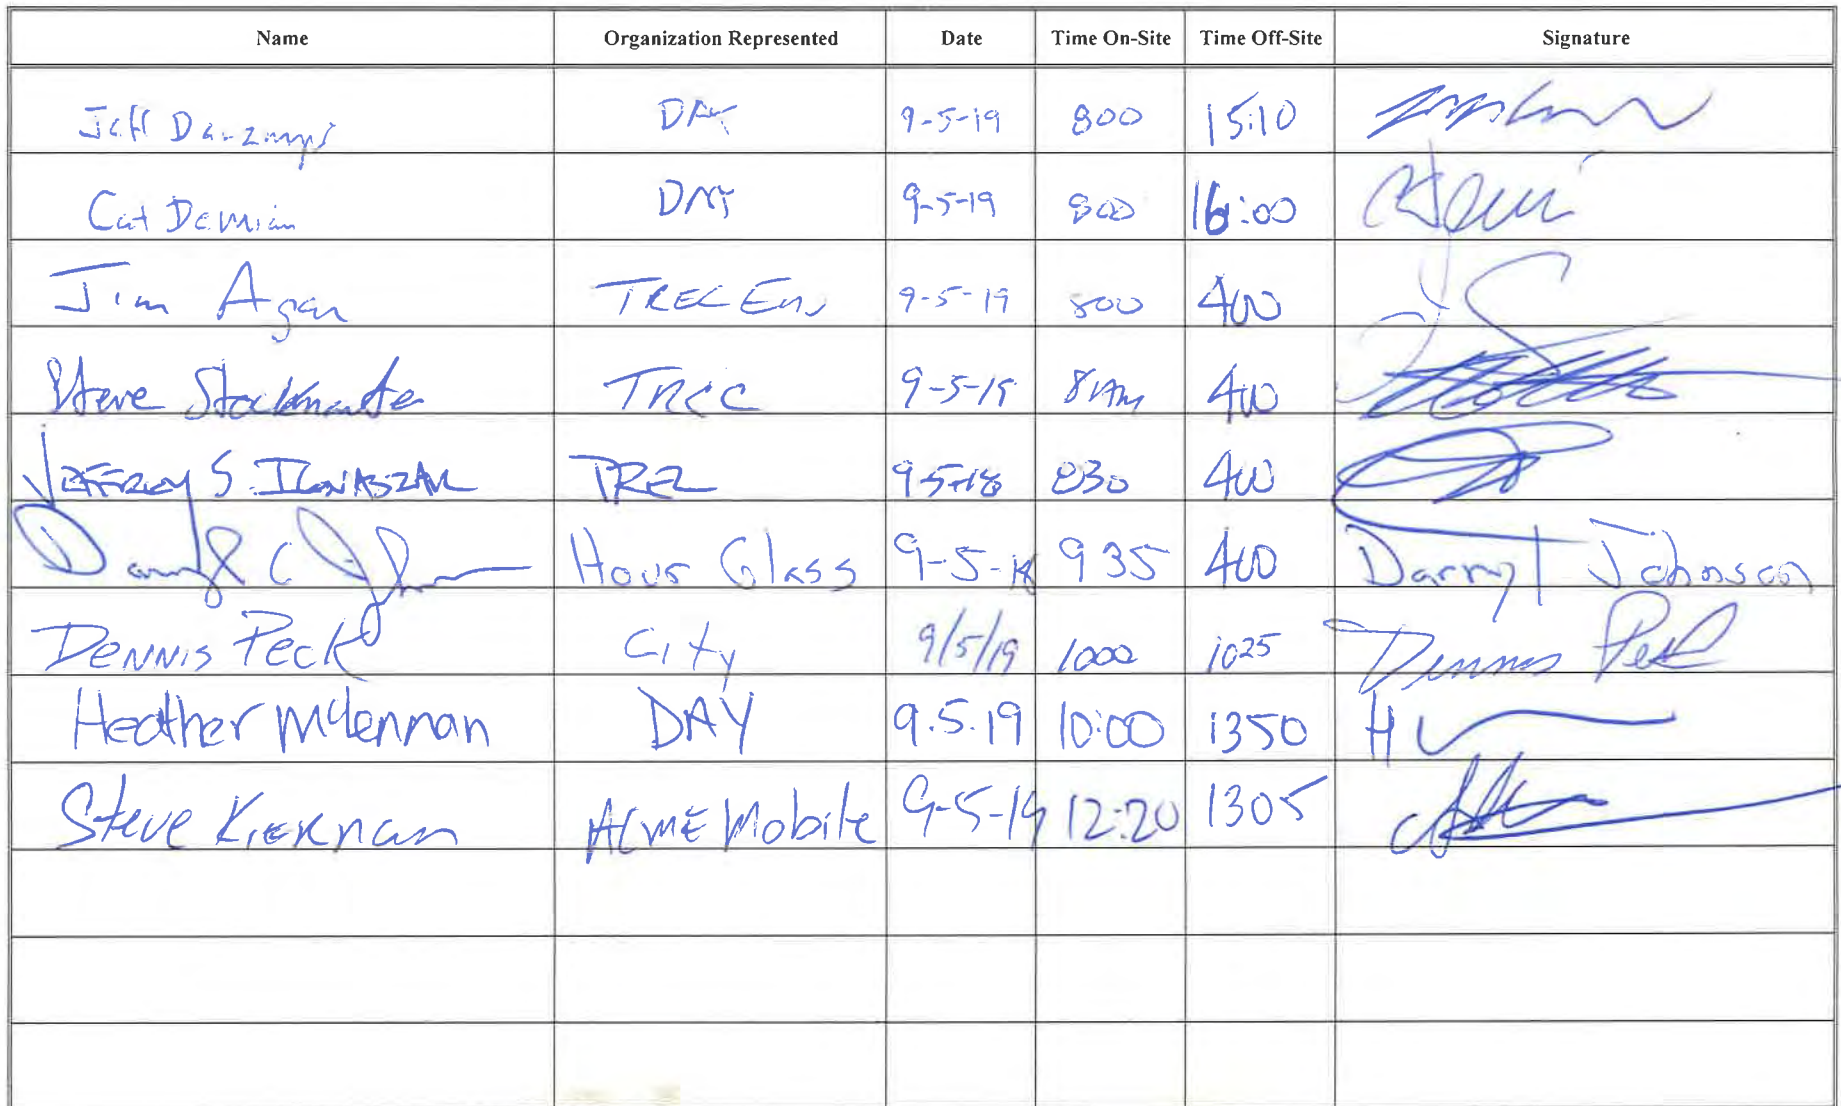 Name Organization Represented Date Time On-Site Time Off-Site Signature
Jeff DAY 9-5-19 800 15:10
Cat Demian DAY 9-5-19 800 16:00
Jim Agar TREC Env 9-5-19 800 400
Steve TREC 9-5-19 8 AM 400
JEFFREY S. TREC 9-5-18 830 400
Hour Glass 9-5-18 935 400 Darryl Johnson
DENNIS PECK City 9/5/19 1000 1025 Dennis Peck
Heather McLennan DAY 9.5.19 10:00 1350
Steve KIERNAN ACME Mobile 9-5-19 12:20 1305